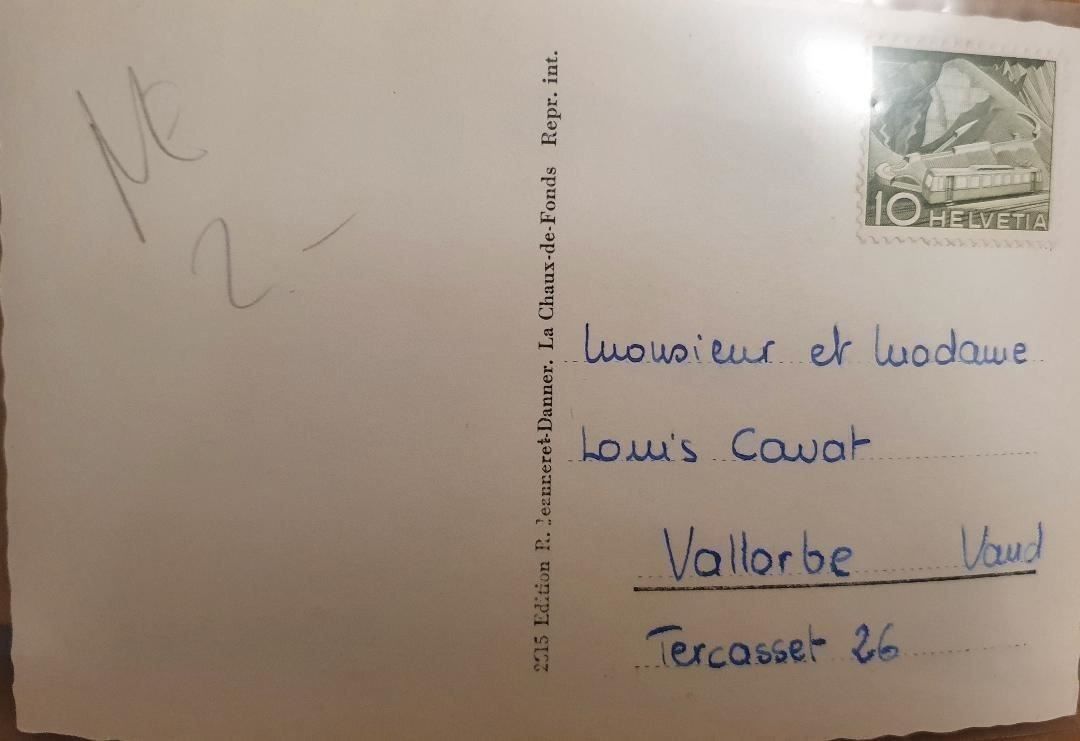 10 HELVETIA
Edition R. Jeanneret-Danner. La Chaux-de-Fonds Repr. int.
Monsieur et Madame
Louis Cavat
Vallorbe Vaud
Tercasset 26
2.-